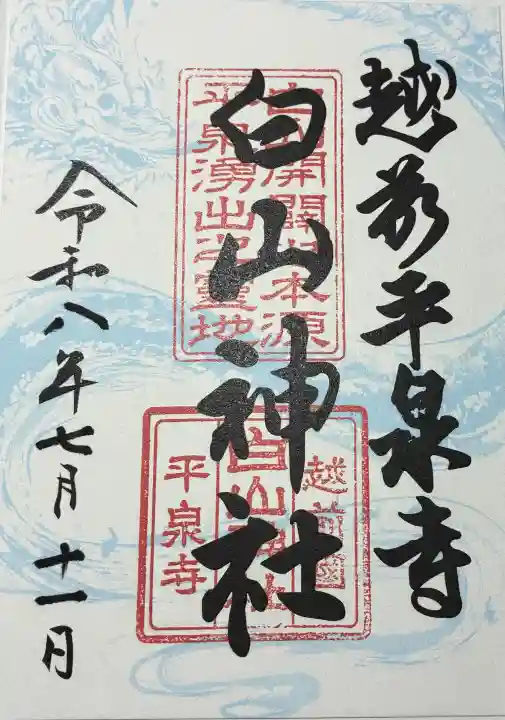 越前平泉寺
白山神社
令和八年七月十一日
白山開闢之本源
平泉湧出之霊地
越前國
白山神社
平泉寺